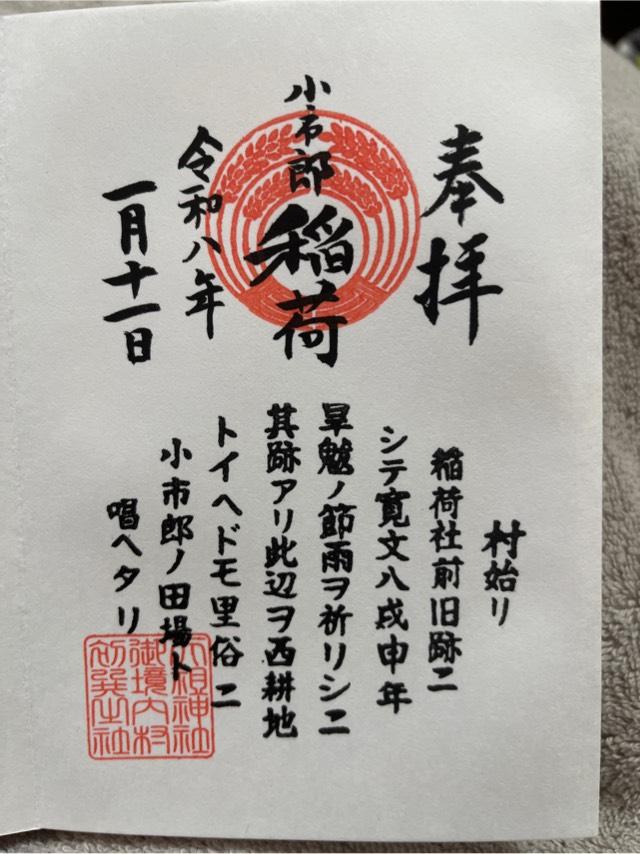 奉拝
小市郎稲荷
令和八年
一月十一日
村始リ
稲荷社前旧跡ニ
シテ寛文八戌申年
旱魃ノ節雨ヲ祈リシニ
其跡アリ此辺ヲ西耕地
トイヘドモ里俗ニ
小市郎ノ田場ト
唱ヘタリ
祖神社
御境内村